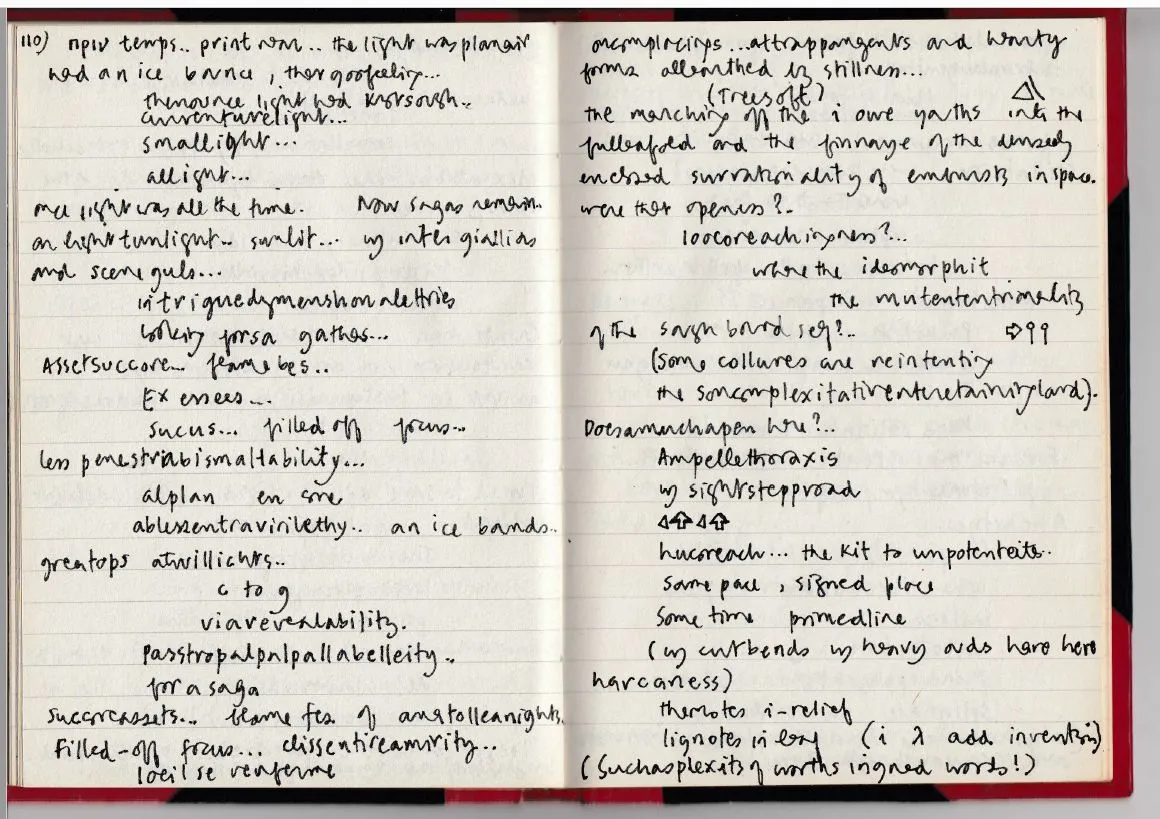 110) πριν temps.. print near.. the light was planair
had an ice bance, thergoofeeling...
thenounce light had
currenturelight...
smallight...
allight...
once light was all the time. Now sagas remain..
an light tunlight.. sunlit... by inter giallias
and scene guls...
intriguedymenshonalettries
looking forsa gathes...
Assetsuccore... flamebes..
Ex ensees...
sucus... filled off focus...
less penestriabismaltability...
alplan en
ablessentravirilethy.. an ice bands..
greatops atwillichts..
c to g
viarevealability.
Passtropalpalpallabelleity..
for a saga
succoreassets... flame fes of anatolleanights.
Filled-off focus... dissentireamirity...
loeil se renferme
oncomplacings...attrappangents and wanty
forms allearthed by stillness...
(Treesoft)
the marching off the i owe yaths into the
fulleafold and the finnage of the densedly
enclosed surrationality of embursts in space.
were that openess?..
loocoreachingness?...
where the ideomorphit
the mutententrionality
of the saugh bound seg?.. ⇨99
(Some collures are reintenting
the soncomplexitativenteretaining land).
Doesamuchapen here?..
Ampellethoraxis
by sightstepproad
◁⇧◁⇧
hucoreach... the Kit to unpotenteite..
same pace, signed place
Some time primedline
(by cutbends by heavy ands here here
harcaness)
thenotes i-relief
lignotes in long (i λ add inventing)
(Suchasplexits of worths ingned words!)